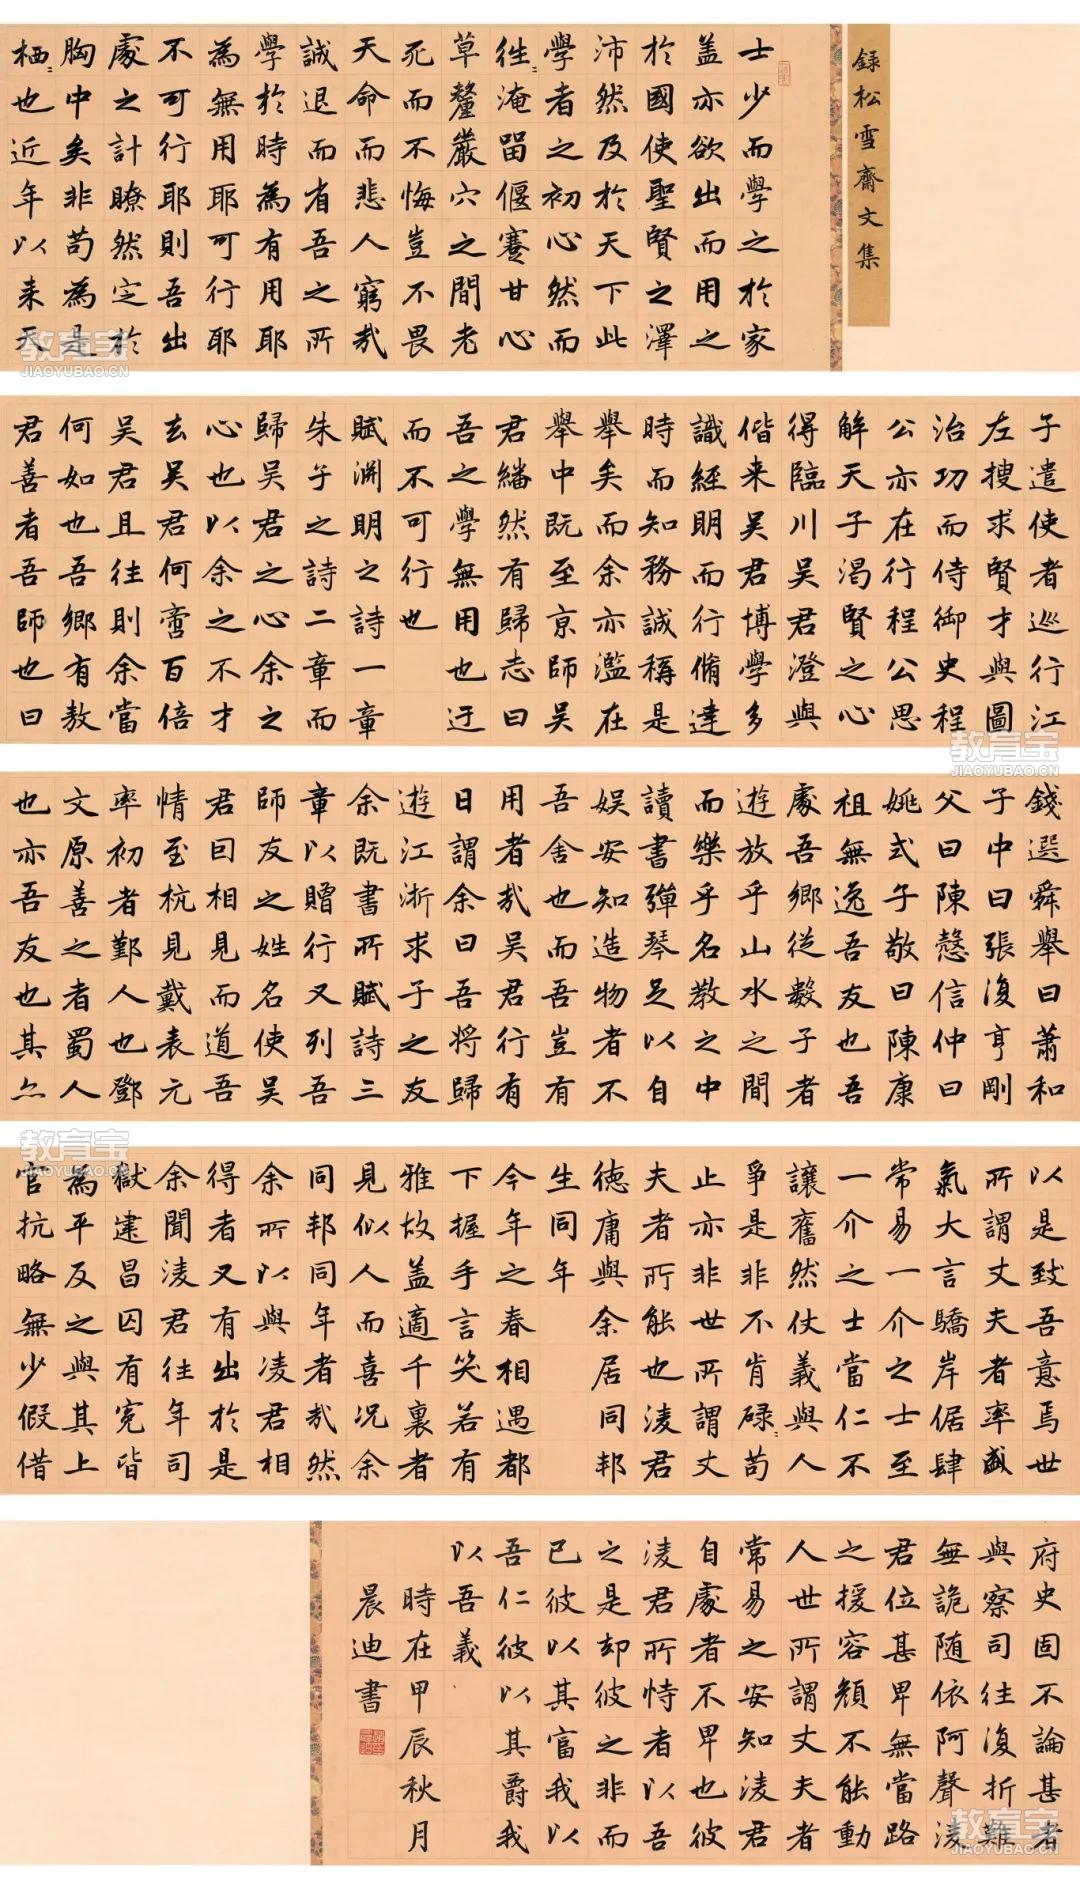 錄松雪齋文集
士少而學之於家
蓋亦欲出而用之
於國使聖賢之澤
沛然及於天下此
學者之初心然而
往〻淹留偃蹇甘心
草釐巖穴之間老
死而不悔豈不畏
天命而悲人窮哉
誠退而省吾之所
學於時為有用耶
為無用耶可行耶
不可行耶則吾出
處之計瞭然定於
胸中矣非苟為是
栖〻也近年以来天
子遣使者巡行江
左搜求賢才與圖
治功而侍御史程
公亦在行程公思
解天子渴賢之心
得臨川吳君澄與
偕来吳君博學多
識經明而行脩達
時而知務誠稱是
舉矣而余亦濫在
舉中既至京師吳
君繙然有歸志曰
吾之學無用也迂
而不可行也
賦渊明之詩一章
朱子之詩二章而
歸吳君之心余之
心也以余之不才
去吳君何啻百倍
吳君且往則余當
何如也吾鄉有敖
君善者吾師也曰
錢選舜舉曰蕭和
子中曰張復亨剛
父曰陳慤信仲曰
姚式子敬曰陳康
祖無逸吾友也吾
處吾鄉從數子者
遊放乎山水之間
而樂乎名教之中
讀書彈琴足以自
娛安知造物者不
吾舍也而吾豈有
用者哉吳君行有
日謂余曰吾將歸
遊江淅求子之友
余既書所賦詩三
章以贈行又列吾
師友之姓名使吳
君囙相見而道吾
情至杭見戴表元
率初者鄞人也鄧
文原善之者蜀人
也亦吾友也其亦
以是致吾意焉世
所謂丈夫者率盛
氣大言驕岸倨肆
常易一介之士至
一介之士當仁不
讓奮然仗義與人
爭是非不肯碌〻苟
止亦非世所謂丈
夫者所能也淩君
德庸與余居同邦
生同年
今年之春相遇都
下握手言笑若有
雅故蓋適千裏者
見似人而喜况余
同邦同年者哉然
余所以與凌君相
得者又有出於是
余聞凌君往年司
獄建昌囚有寃皆
為平反之與其上
官抗略無少假借
府史固不論甚者
與察司往復折難
無詭随依阿聲淩
君位甚卑無當路
之援容顏不能動
人世所謂丈夫者
常易之安知淩君
自處者不卑也彼
淩君所恃者以吾
之是却彼之非而
已彼以其富我以
吾仁彼以其爵我
以吾義
時在甲辰秋月
晨迪書
教育宝
JIAOYUBAO.CN
教育宝
JIAOYUBAO.CN
教育宝
JIAOYUBAO.CN
教育宝
JIAOYUBAO.CN